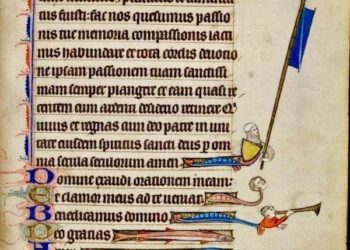 nus fuisti: fac nos quesumus passio
nis tue memoria compassionis lacri
mas habundare et tota cordis deuotio
ne ipsam passionem tuam sanctissi
mam semper plangere et eam quasi re
centem cum ardenti desiderio retinere Q̇
uiuis et regnas cum deo patre in uni
tate eiusdem spiritus sancti deus p om
nia secula seculorum amen
Domine exaudi orationem meam:
Et clamor meus ad te ueniat
Benedicamus domino
Deo gratias